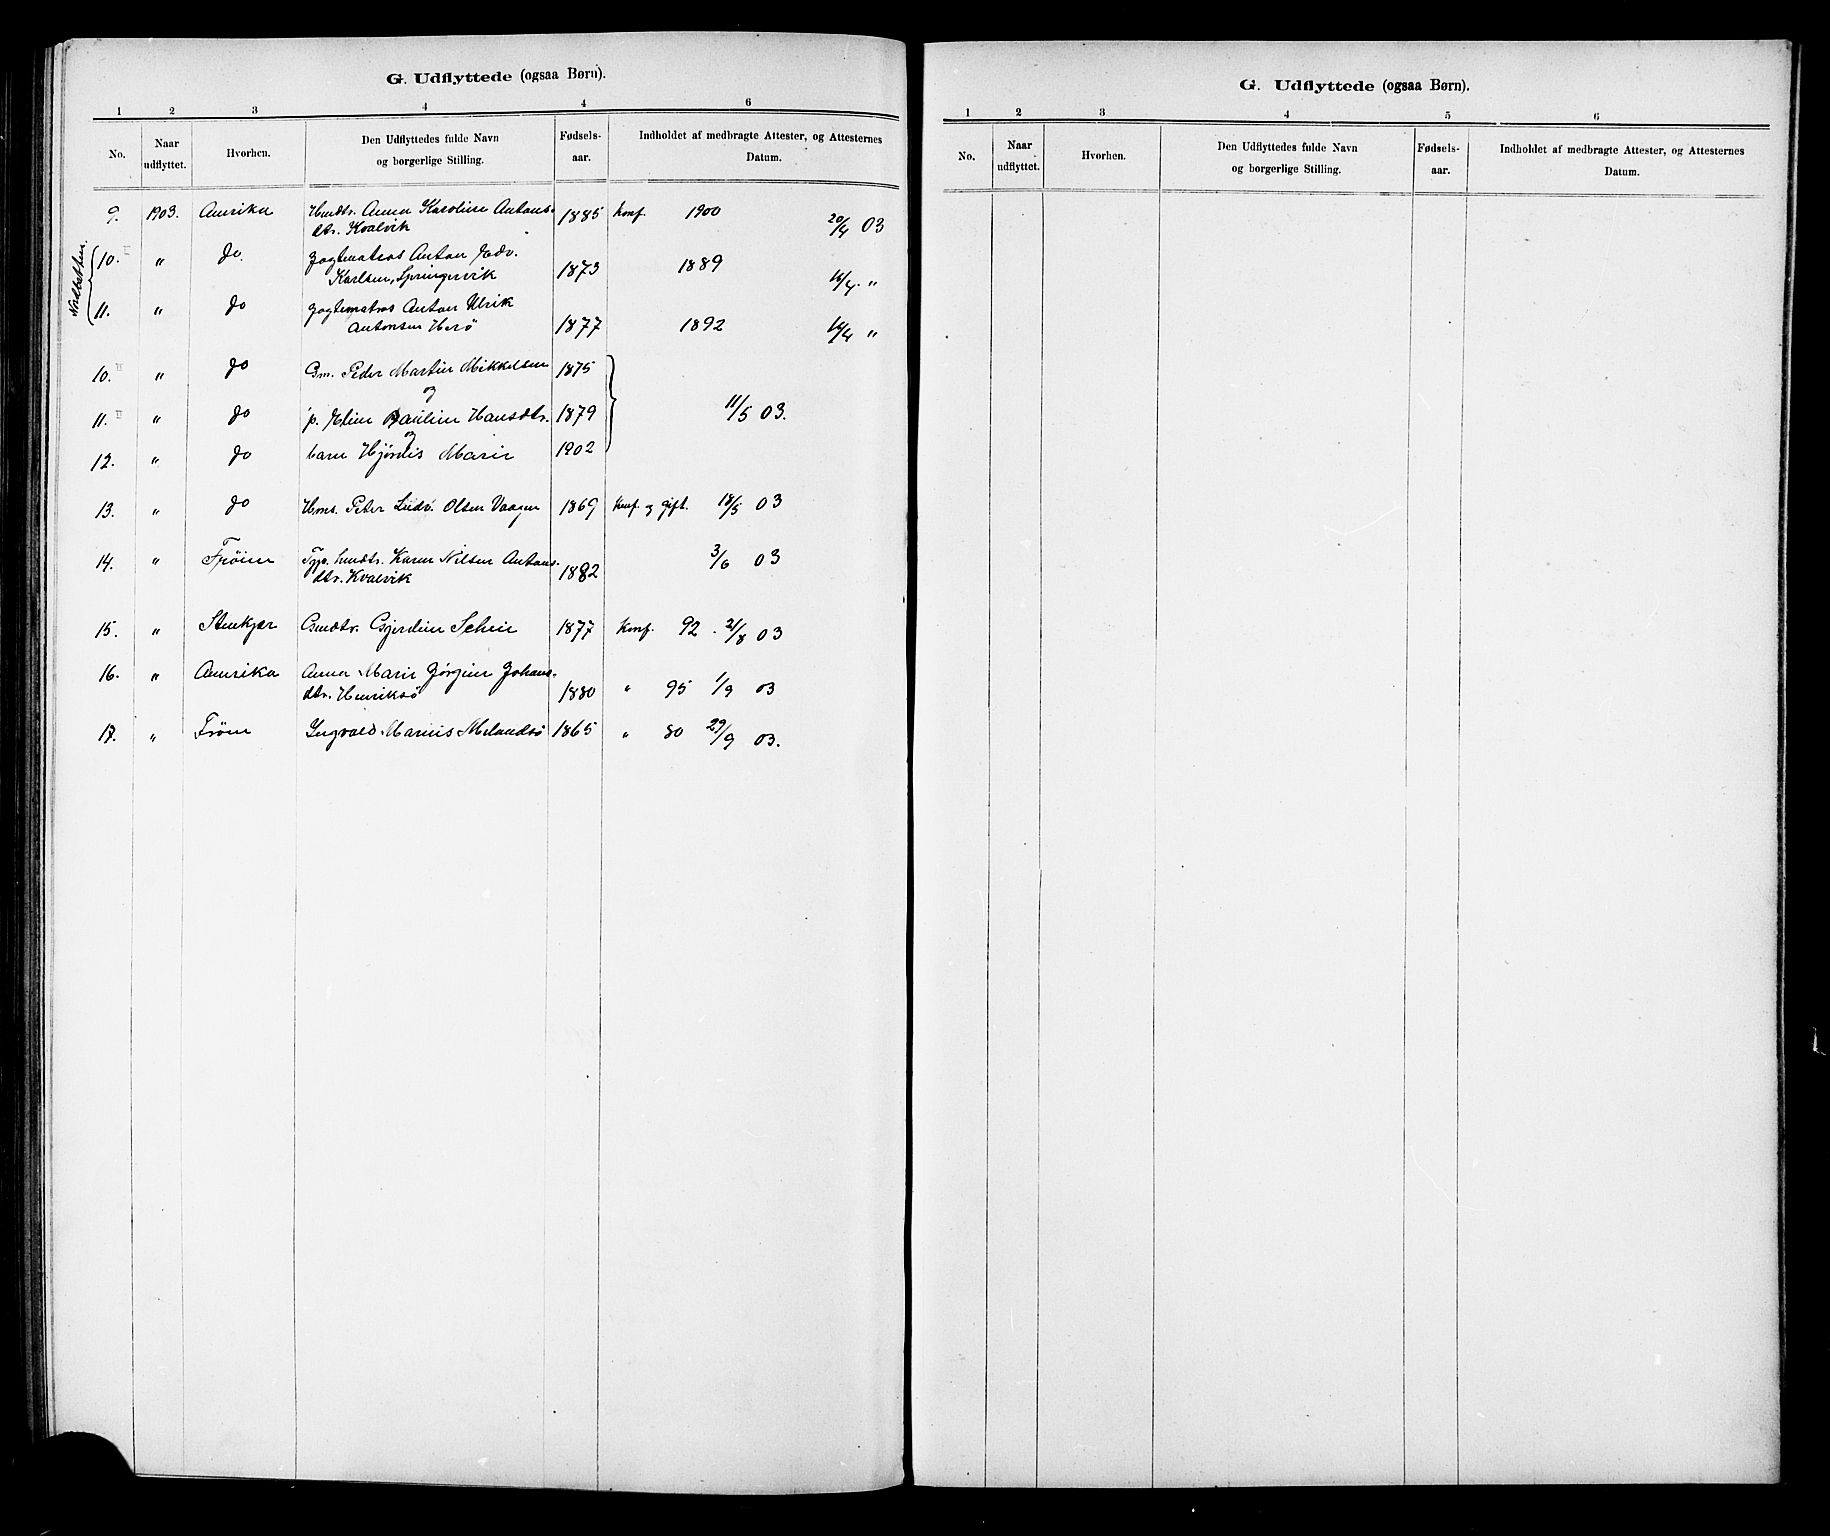 G. Udflyttede (ogsaa Børn).
1 2 3 4 4 6
No. Naar udflyttet. Hvorhen. Den Udflyttedes fulde Navn og borgerlige Stilling. Fødselsaar. Indholdet af medbragte Attester, og Attesternes Datum.
9. 1903. Amerika Husdtr. Anna Karoline Antons- 1885 konf. 1900 20/4 03
dtr. Kvalvik
10. I " do. Jagtmatros Anton Edv.
Karlsen, Springervik 1873 1889 "
11. " do Jagtmatros Anton Ulrik
Antonsen Herø 1877 1892 "
10. II " do Gm. Peder Martin Mikkelsen 1875
og
11. II " do p. Eline Pauline Hansdtr. 1879 11/5 03.
og
12. " do barn Hjørdis Marie 1902
13. " do Hms. Peter Ludv. Olsen Vaagen 1869 Konf. og gift. 18/5 03
14. " Frøien Karen Nilsen Antons-
dtr. Kvalvik 1882 3/6 03
15. " Stenkjær Gmdtr. Gjerdine Schei 1877 Konf. 92. 21/8 03
16. " Amerika Anna Marie Jørgine Johans-
dtr. Henriksø 1880 " 95 1/9 03
17. " Frøien Ingvald Marius Melandsø 1865 " 80 29/9 03.
G. Udflyttede (ogsaa Børn).
1 2 3 4 5 6
No. Naar udflyttet. Hvorhen. Den Udflyttedes fulde Navn og borgerlige Stilling. Fødselsaar. Indholdet af medbragte Attester, og Attesternes Datum.